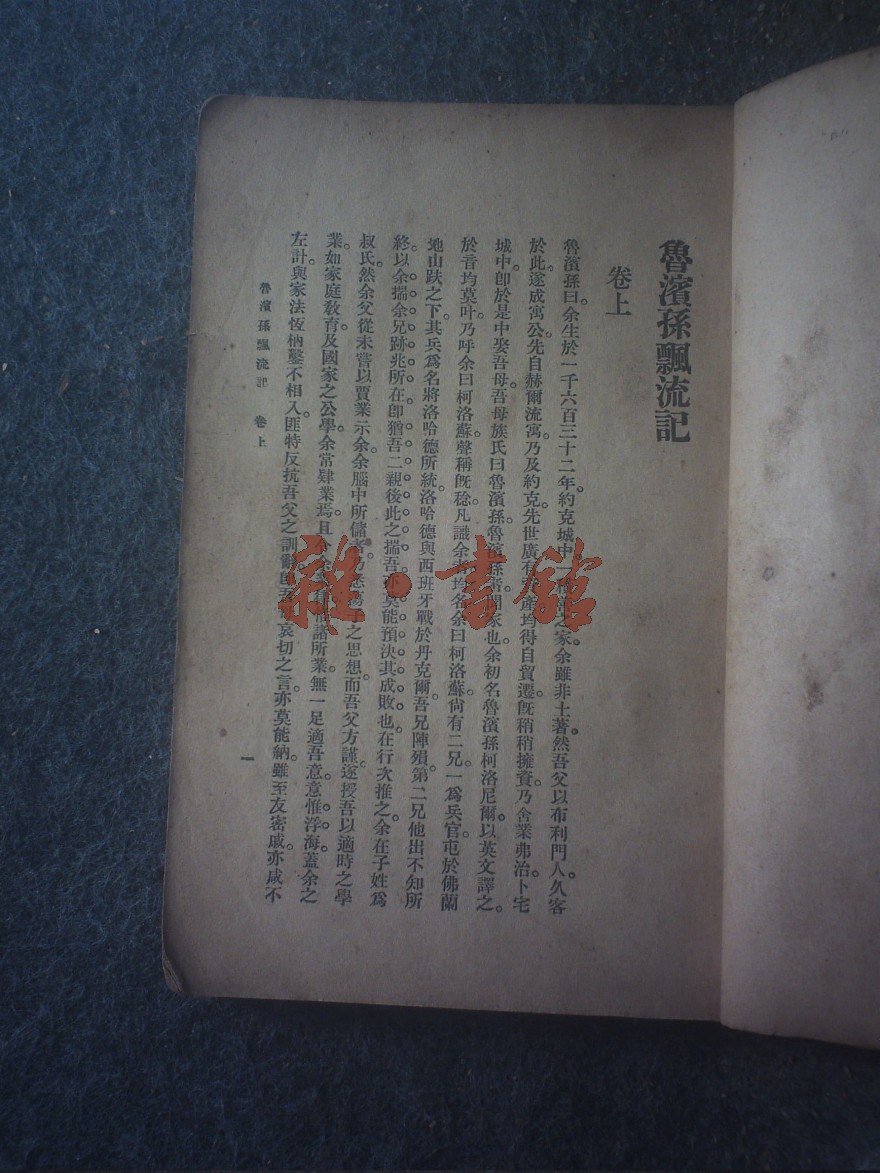 魯濱孫飄流記
卷上
魯濱孫曰。余生於一千六百三十二年。約克城中一積善之家。余雖非土著。然吾父以布利門人。久客
於此。遂成寓公。先自赫爾流寓。乃及約克。先世廣有產。均得自貿遷。旣稍稍擁資。乃舍業弗治。卜宅
城中。卽於是中娶吾母。吾母族氏曰魯濱孫。魯濱孫者聞家也。余初名魯濱孫柯洛尼爾。以英文譯之。
於音均莫叶。乃呼余曰柯洛蘇。聲稱旣稔。凡識余者均名余曰柯洛蘇。尙有二兄。一爲兵官。屯於佛蘭
地山趺之下。其兵爲名將洛哈德所統。洛哈德與西班牙戰於丹克爾。吾兄陣殞。第二兄他出不知所
終。以余揣余兄跡兆所在。卽猶吾二親後此之揣吾。亦莫能預決其成敗也。在行次推之。余在子姓爲
叔氏。然余父從未嘗以賈業示余。余腦中所儲者。乃悉蕩子之思想。而吾父方謹。遂授吾以適時之學
業。如家庭教育及國家之公學。余常肄業焉。且令余諸所業。無一足適吾意。意惟浮海。蓋余之
左計。與家法恆枘鑿不相入。匪特反抗吾父之訓辭。卽吾母哀切之言。亦莫能納。雖至友密戚。亦咸不
魯濱孫飄流記 卷上
一
雜·書館